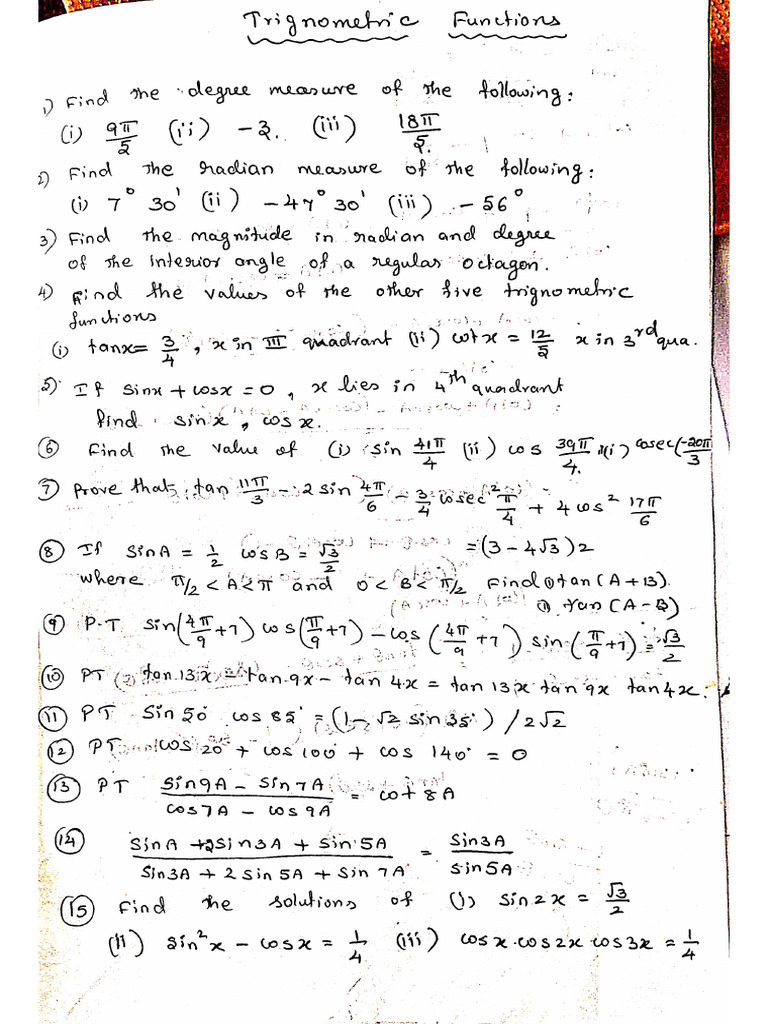 Trignometric Functions
1) Find the degree measure of the following:
(i) 9π/5 (ii) -3. (iii) 18π/5.
2) Find the radian measure of the following:
(i) 7° 30' (ii) -47° 30' (iii) -56°
3) Find the magnitude in radian and degree
of the interior angle of a regular octagon.
4) Find the values of the other five trignometric
functions
(i) tanx = 3/4, x in III quadrant (ii) cotx = 12/5 x in 3rd qua.
5) If sinx + cosx = 0, x lies in 4th quadrant
find sinx, cosx.
6) Find the value of (i) sin 41π/4 (ii) cos 39π/4. (iii) cosec(-20π/3
7) Prove that, tan 11π/3 - 2 sin 4π/6 - 3/4 cosec² π/4 + 4 cos² 17π/6
= (3 - 4√3)2
8) If sinA = 1/2 cosB = √3/2
where π/2 < A < π and 0 < B < π/2 Find ① tan(A+B)
② tan(A-B)
9) P.T sin(4π/9 + 7) cos(π/9 + 7) - cos(4π/9 + 7) sin(π/9 + 7) = √3/2
10) PT tan 13x = tan 9x - tan 4x = tan 13x tan 9x tan 4x.
11) PT Sin 50 cos 85° = (1 - √2 sin 35°) / 2√2
12) PT cos 20° + cos 100° + cos 140° = 0
13) PT Sin9A - Sin7A / cos7A - cos9A = cot 8A
14) SinA + 2Sin3A + Sin5A / Sin3A + 2 Sin 5A + Sin 7A = Sin3A / Sin5A
15) Find the solutions of (i) sin2x = √3/2
(ii) sin²x - cosx = 1/4 (iii) cosx·cos2x cos3x = 1/4